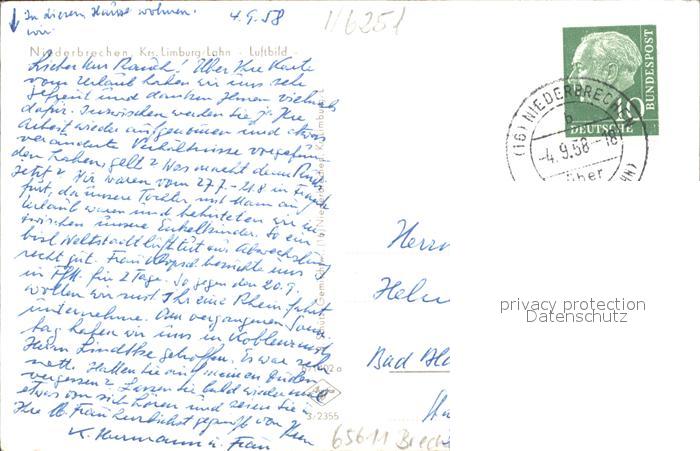 In diesem Hause wohnen
wir
4.9.58
11/6251
Niederbrechen, Krs. Limburg/Lahn - Luftbild -
Lieber Herr ! Über Ihre Karte
vom Urlaub haben wir uns sehr
gefreut und danken Ihnen vielmals
dafür. Inzwischen werden Sie ja Ihre
Arbeit wieder aufgenommen und etwas
veränderte Verhältnisse vorgefunden
haben, gell? Was macht denn
jetzt? Wir waren vom 27.7.-21.8 in
furt, da unsere Tochter mit Mann auf
Urlaub waren und behüteten wir in-
zwischen unsere Enkelkinder. So ein
bissl Weltstadtluft tut zur Abwechslung
recht gut. Frau besuchte uns
in Ffm. für 2 Tage. So gegen den 20.9.
wollen wir erst Ihre Rheinfahrt
unternehmen. Am vergangenen Sonn-
tag haben wir uns in Koblenz mit
Herrn getroffen. Es war sehr
nett. Hatten Sie auf meinen Bruder
vergessen? Lassen Sie bald wieder mal
etwas von sich hören und seien Sie u.
Ihre lb. Frau herzlichst gegrüßt von Ihren
K. Hermann u. Frau
3-2355
65611 Brech
DEUTSCHE BUNDESPOST
10
(16) NIEDERBRECHEN
b
-4.9.58-18
über
Herrn
Helm
Bad
privacy protection
Datenschutz